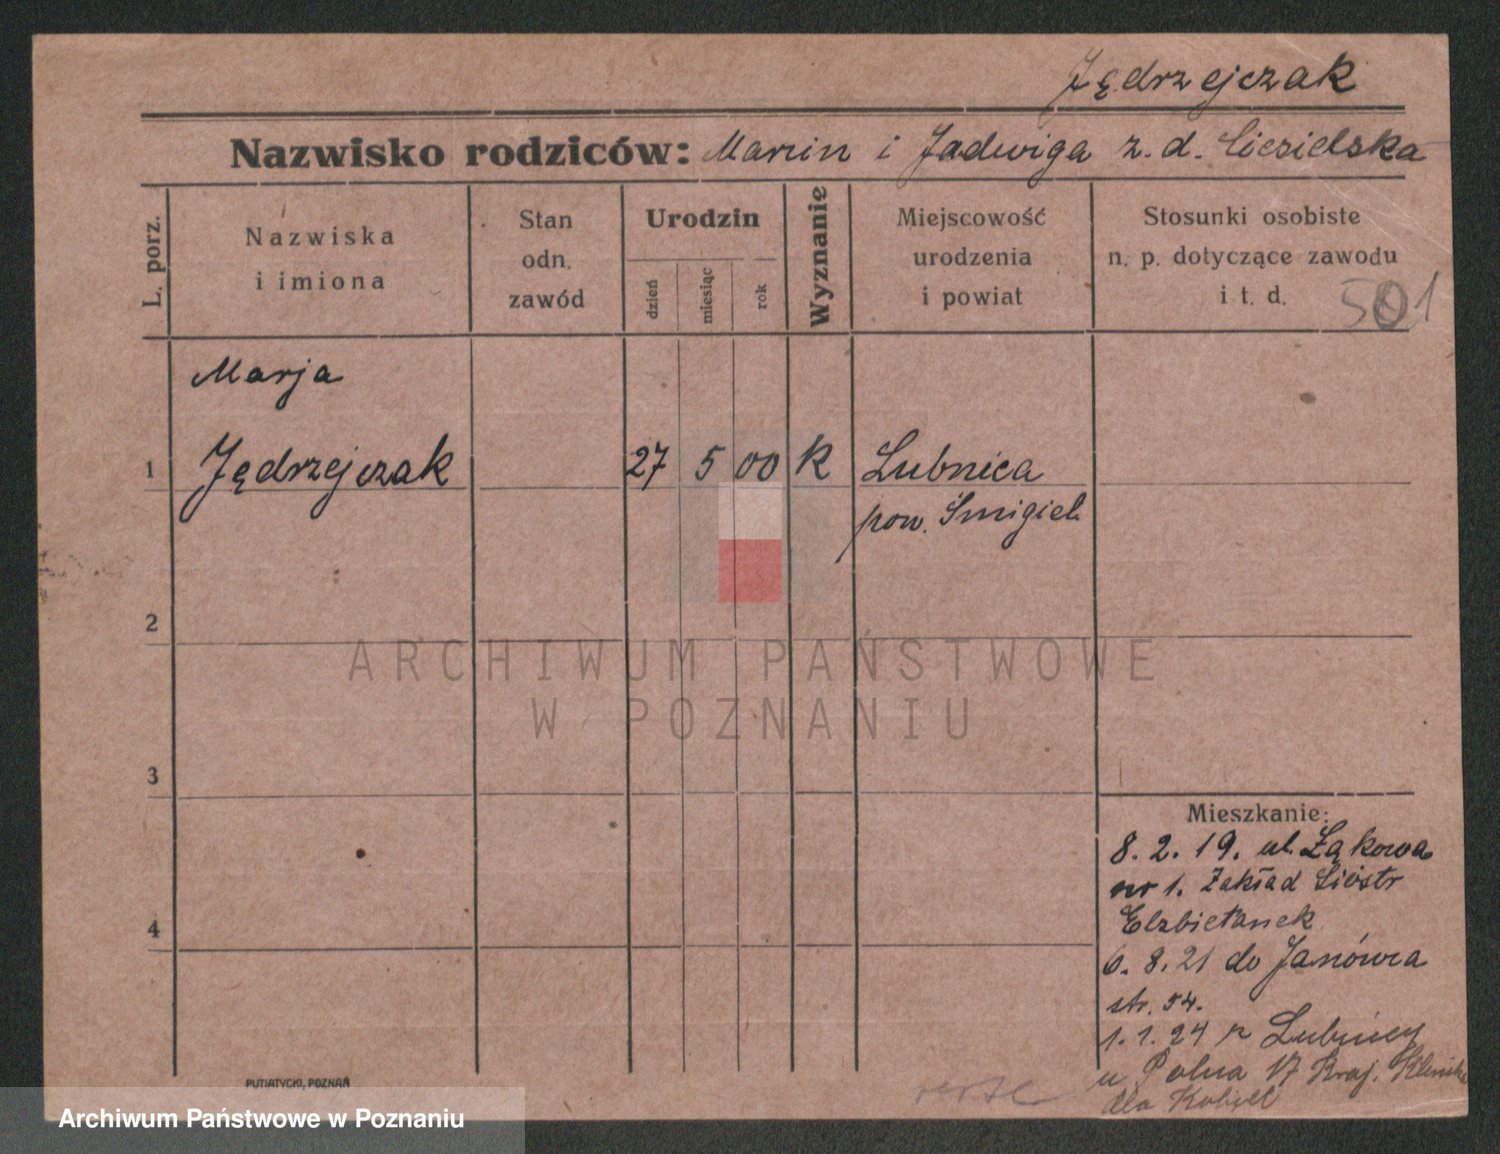 Jędrzejczak
Nazwisko rodziców: Marcin i Jadwiga z. d. Ciesielska
L. porz.
Nazwiska
i imiona
Stan
odn.
zawód
Urodzin
dzień
miesiąc
rok
Wyznanie
Miejscowość
urodzenia
i powiat
Stosunki osobiste
n. p. dotyczące zawodu
i t. d.
501
Marja
1 Jędrzejczak 27 5 00 K Lubnica
pow. Śmigiel
2
3
4
ARCHIWUM PAŃSTWOWE
W POZNANIU
Mieszkanie:
8. 2. 19. ul. Łąkowa
nr 1. Zakład Sióstr
Elżbietanek
6. 8. 21 do Janówca
str. 54.
1. 1. 24 z Lubnicy
u Polna 17 Kraj. Klinika
dla Kobiet
verte
PUTIATYCKI, POZNAŃ
Archiwum Państwowe w Poznaniu